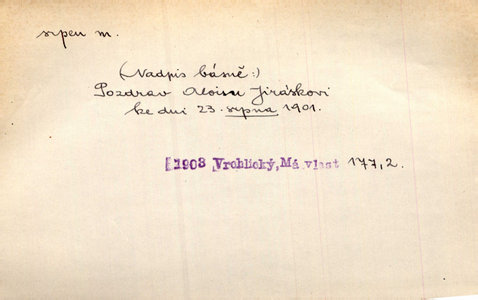 srpen m.
(Nadpis básně:)
Pozdrav Aloisu Jiráskovi
ke dni 23. srpna 1901.
[1903 Vrchlický, Má vlast 177,2.